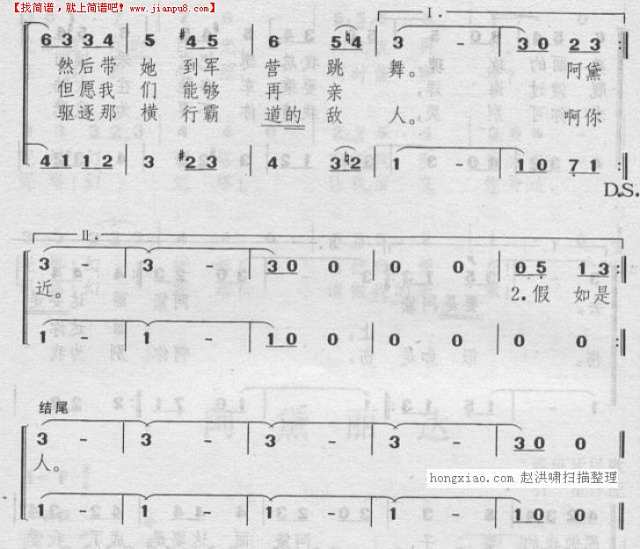 【找简谱，就上简谱吧！www.jianpu8.com】
I.
6 3 3 4 | 5 #4 5 | 6 5 4 | 3 - | 3 0 2 3 :|
然后带 她 到军 营 跳 舞。 阿黛
但愿我 们 能够 再 亲
驱逐那 横 行霸 道的 敌 人。 啊你
4 1 1 2 | 3 #2 3 | 4 3 ♮2 | 1 - | 1 0 7 1 :|
D.S.
II.
3 - | 3 - | 3 0 0 | 0 0 | 0 5 1 3 :|
近。 2.假 如是
1 - | 1 - | 1 0 0 | 0 0 | 0 0 :|
结尾
3 - | 3 - | 3 - | 3 - | 3 0 0
人。
hongxiao.com 赵洪啸扫描整理
1 - | 1 - | 1 - | 1 - | 1 0 0